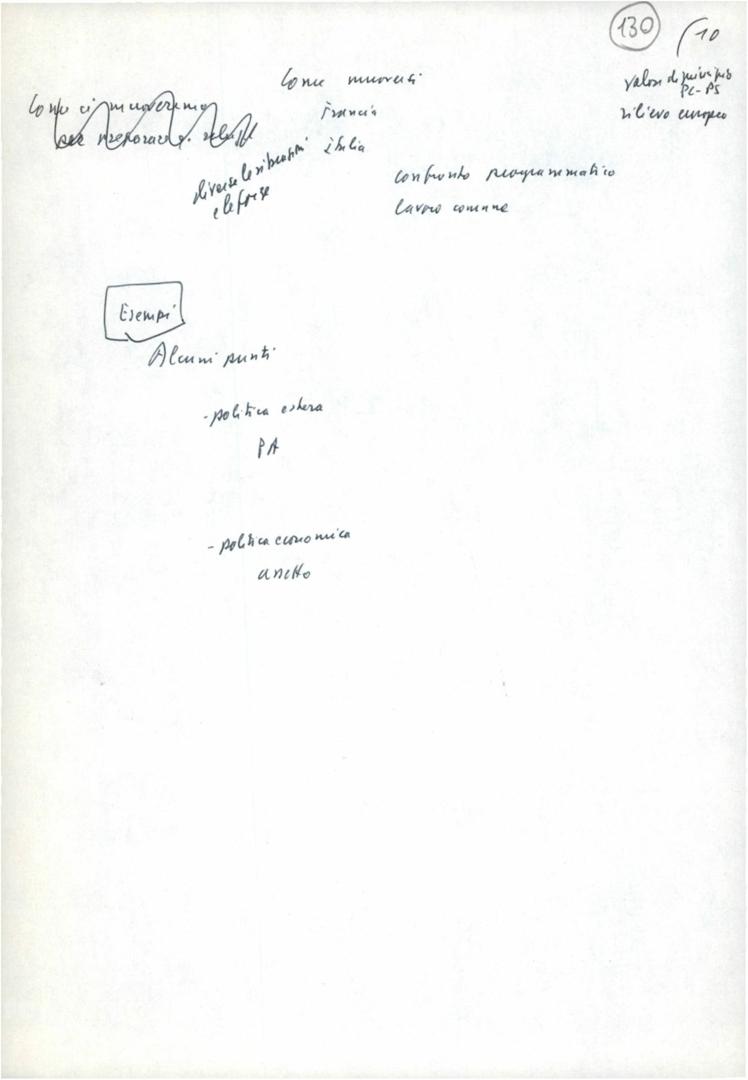 130
10
Come muoversi
valore di principio
PC-PS
Come ci muoveremo
Francia
rilievo europeo
Italia
diverse le situazioni
e le forze
confronto programmatico
lavoro comune
Esempi
Alcuni punti
- politica estera
PA
- politica economica